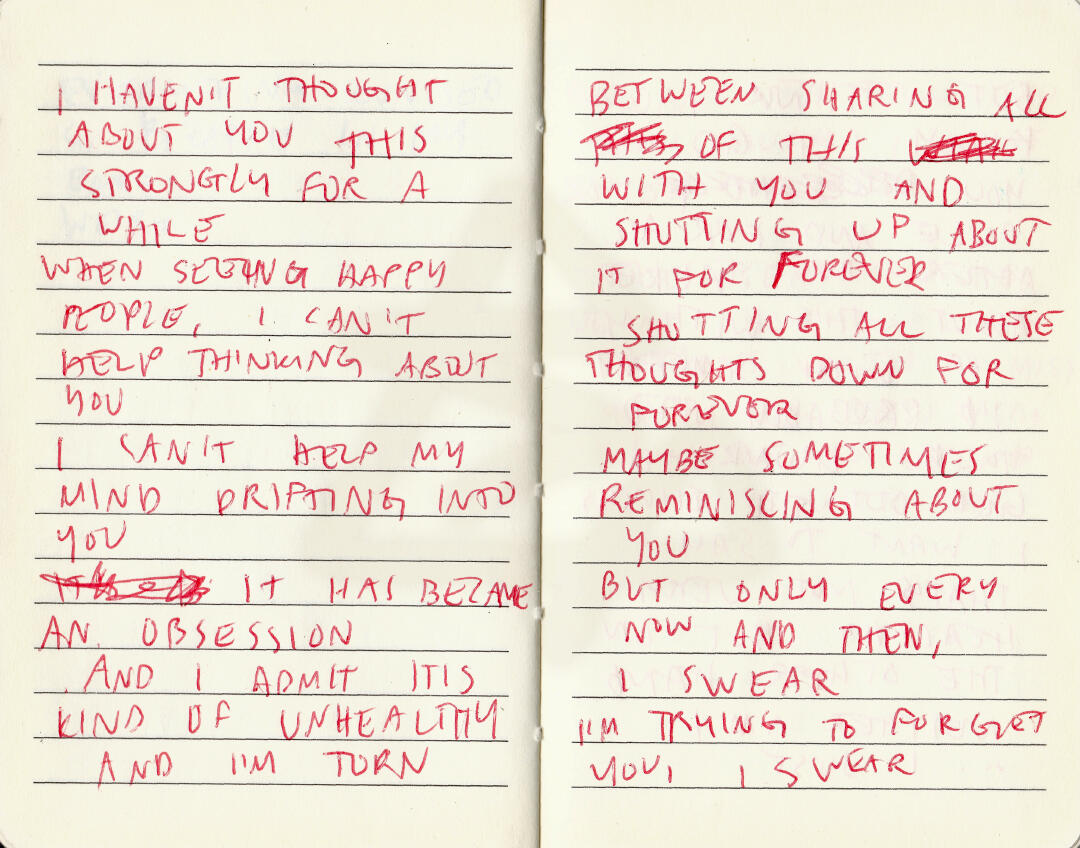 I HAVEN'T THOUGHT
ABOUT YOU THIS
STRONGLY FOR A
WHILE
WHEN SEEING HAPPY
PEOPLE, I CAN'T
HELP THINKING ABOUT
YOU
I CAN'T HELP MY
MIND DRIFTING INTO
YOU
IT HAS BECAME
AN OBSESSION
AND I ADMIT IT IS
KIND OF UNHEALTHY
AND I'M TORN
BETWEEN SHARING ALL
OF THIS
WITH YOU AND
SHUTTING UP ABOUT
IT FOR FOREVER
SHUTTING ALL THESE
THOUGHTS DOWN FOR
FOREVER
MAYBE SOMETIMES
REMINISCING ABOUT
YOU
BUT ONLY EVERY
NOW AND THEN,
I SWEAR
I'M TRYING TO FORGET
YOU, I SWEAR